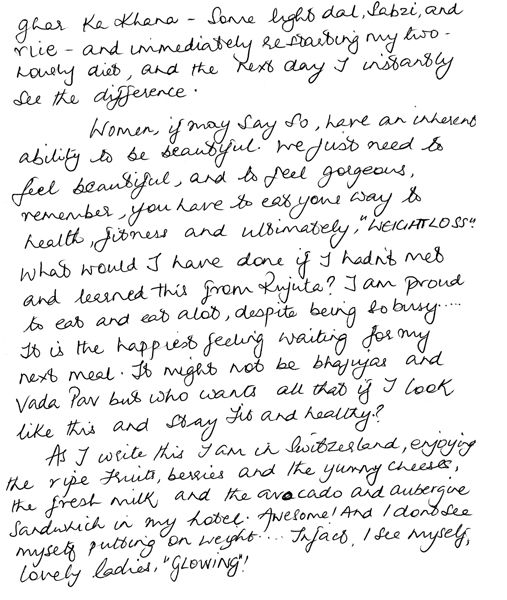 ghar Ka Khana - Some light dal, Sabzi, and
rice - and immediately restarting my two-
hourly diet, and the next day I instantly
see the difference.
Women, if may say so, have an inherent
ability to be beautiful. We just need to
feel beautiful, and to feel gorgeous,
remember, you have to eat your way to
health, fitness and ultimately, "WEIGHTLOSS".
What would I have done if I hadn't met
and learned this from Rujuta? I am proud
to eat and eat alot, despite being so busy....
It is the happiest feeling waiting for my
next meal. It might not be bhajiyas and
Vada Pav but who wants all that if I look
like this and stay fit and healthy?
As I write this I am in Switzerland, enjoying
the ripe fruits, berries and the yummy cheeses,
the fresh milk and the avocado and aubergine
Sandwich in my hotel. Awesome! And I dont see
myself putting on weight.... Infact, I see myself,
lovely ladies, "GLOWING"!